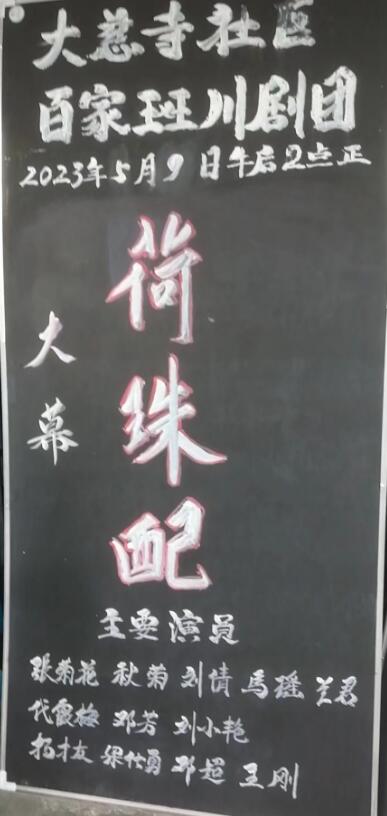 大慈寺社区
百家班川剧团
2023年5月9日午后2点正
大幕
荷珠配
主要演员
张菊花 秋菊 刘情 馬瑶 兰君
代霞梅 邓芳 刘小艳
杨才友 梁仕勇 邓超 王刚